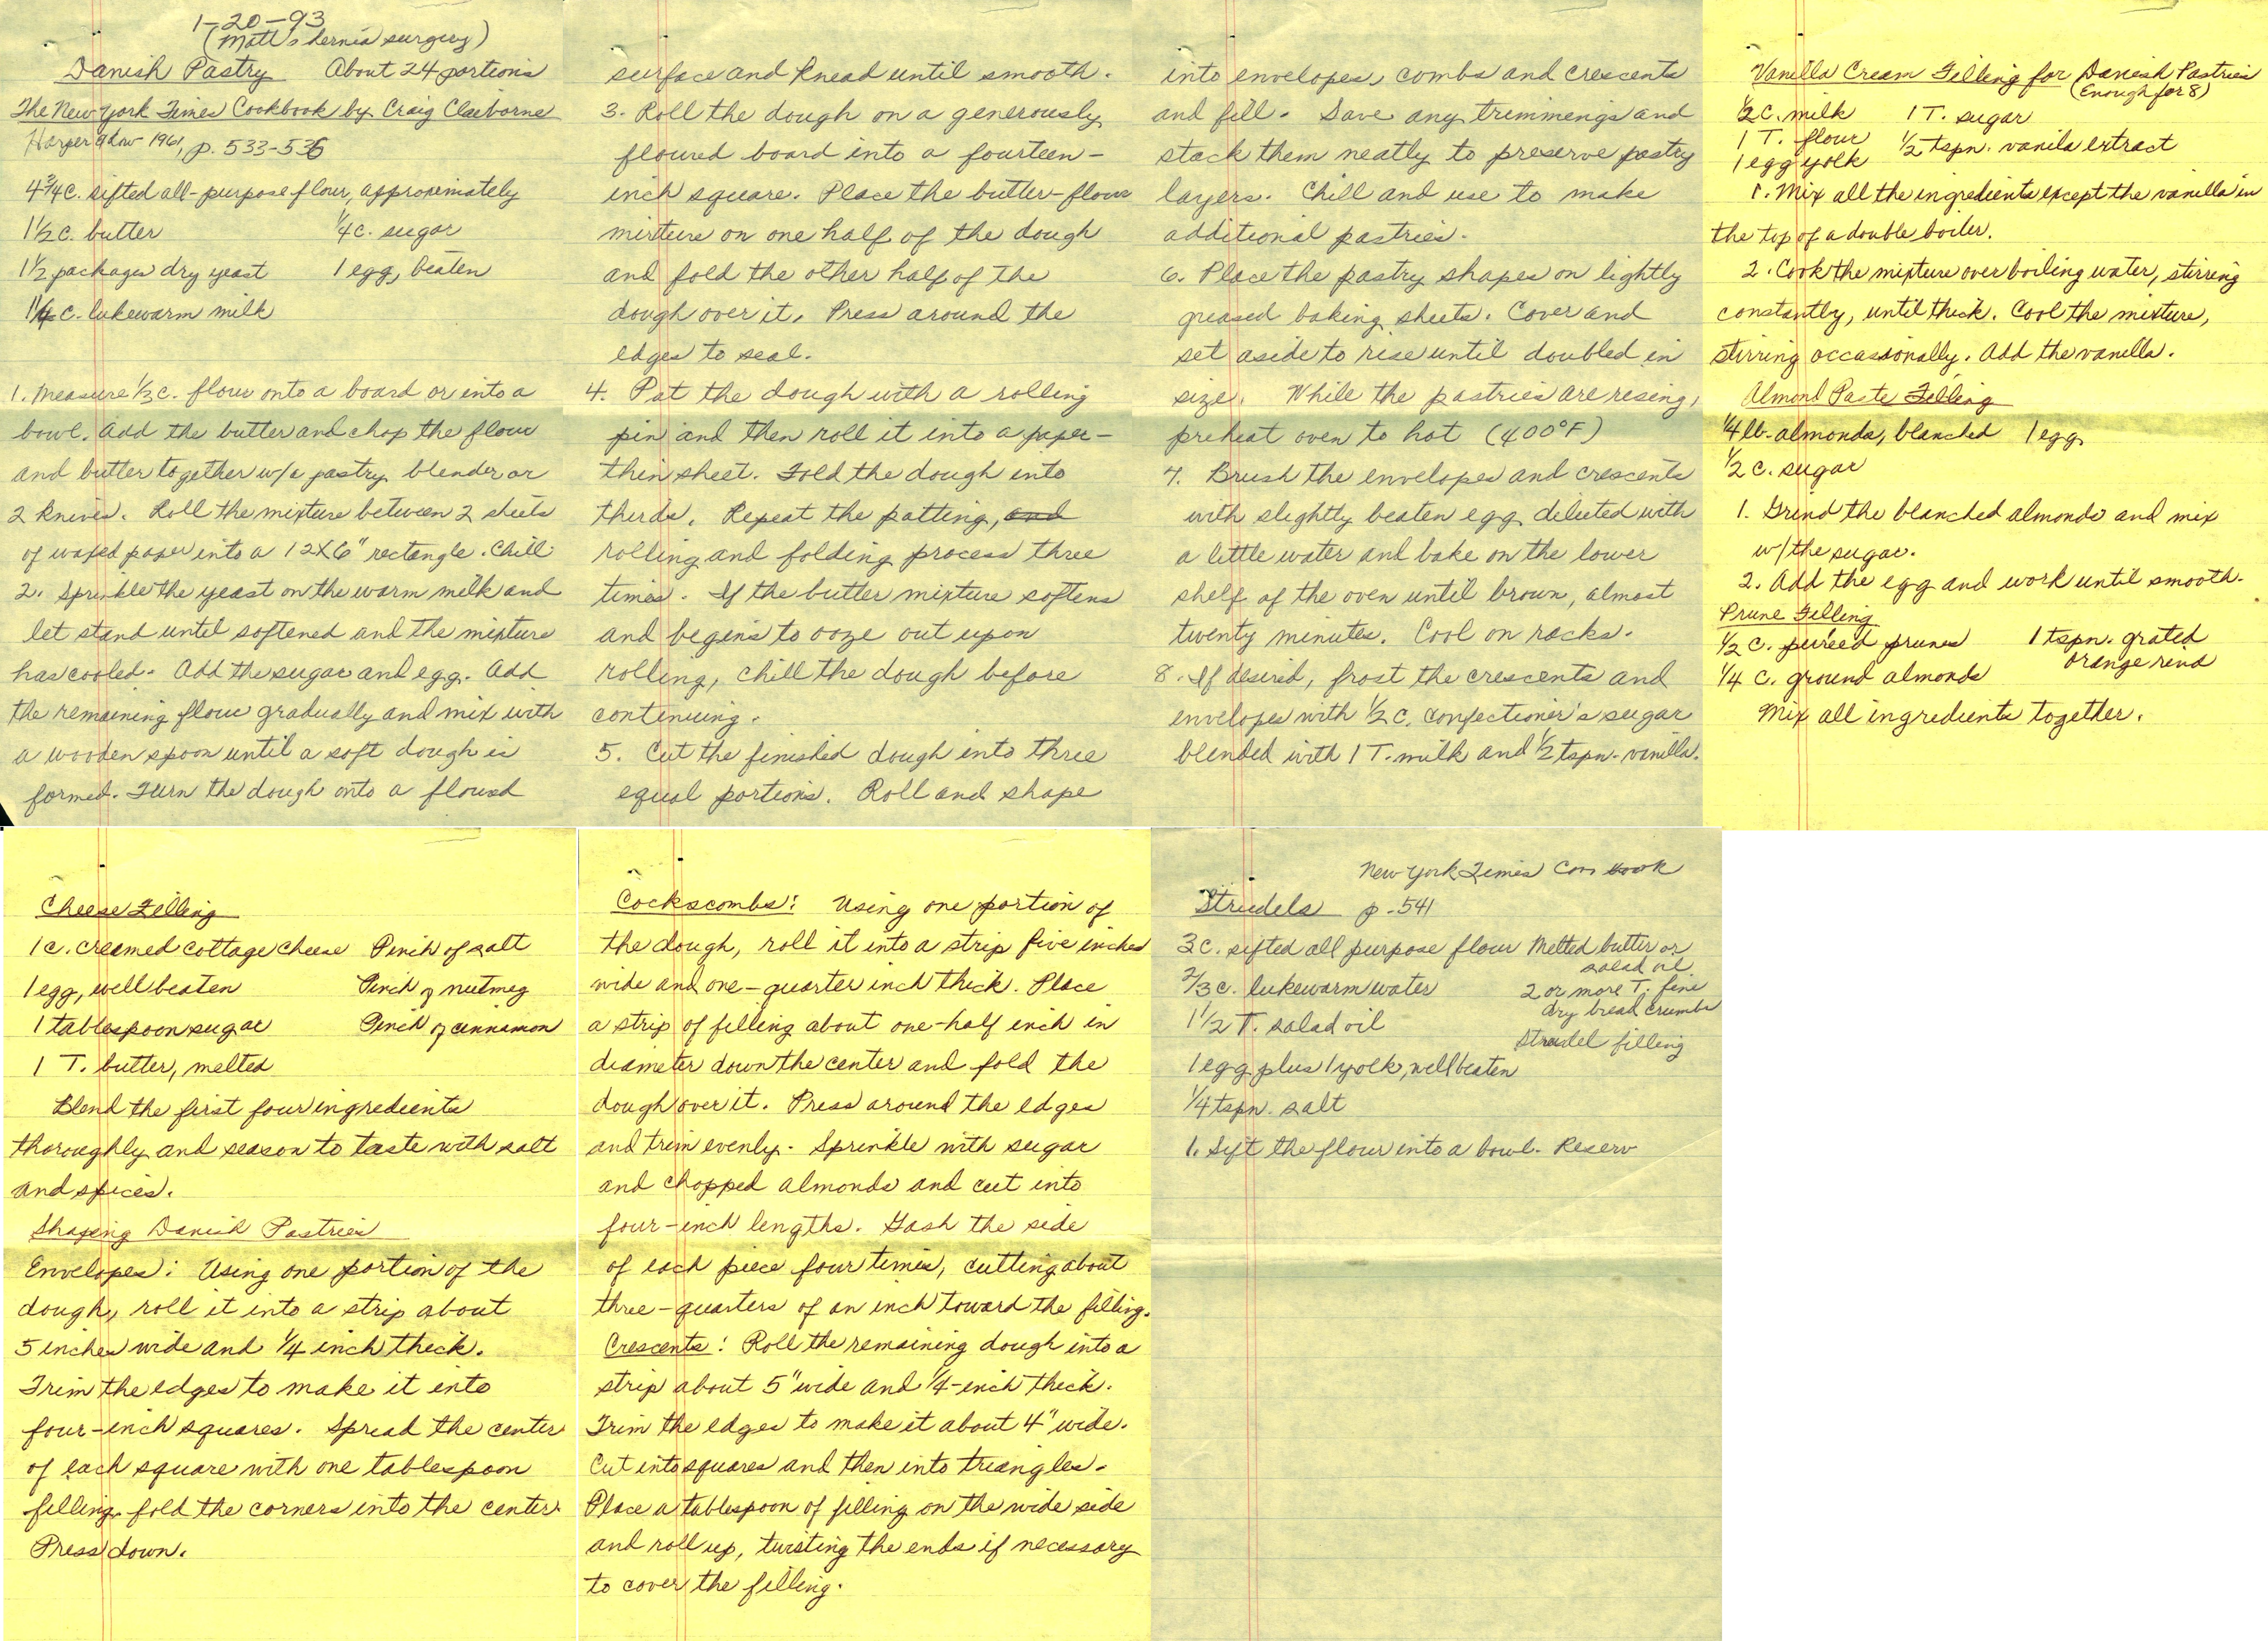 1-20-93
(Matt's hernia surgery)
Danish Pastry About 24 portions
The New York Times Cookbook by Craig Claiborne
Harper & Row 1961, p. 533-536
4 3/4 c. sifted all-purpose flour, approximately
1 1/2 c. butter 1/4 c. sugar
1 1/2 packages dry yeast 1 egg, beaten
1 1/4 c. lukewarm milk
1. Measure 1/3 c. flour onto a board or into a
bowl. Add the butter and chop the flour
and butter together w/a pastry blender or
2 knives. Roll the mixture between 2 sheets
of waxed paper into a 12X6" rectangle. Chill
2. Sprinkle the yeast on the warm milk and
let stand until softened and the mixture
has cooled. Add the sugar and egg. Add
the remaining flour gradually and mix with
a wooden spoon until a soft dough is
formed. Turn the dough onto a floured
surface and knead until smooth.
3. Roll the dough on a generously
floured board into a fourteen-
inch square. Place the butter-flour
mixture on one half of the dough
and fold the other half of the
dough over it. Press around the
edges to seal.
4. Pat the dough with a rolling
pin and then roll it into a paper-
thin sheet. Fold the dough into
thirds. Repeat the patting, and
rolling and folding process three
times. If the butter mixture softens
and begins to ooze out upon
rolling, chill the dough before
continuing.
5. Cut the finished dough into three
equal portions. Roll and shape
into envelopes, combs and crescents
and fill. Save any trimmings and
stack them neatly to preserve pastry
layers. Chill and use to make
additional pastries.
6. Place the pastry shapes on lightly
greased baking sheets. Cover and
set aside to rise until doubled in
size. While the pastries are rising,
preheat oven to hot (400°F)
7. Brush the envelopes and crescents
with slightly beaten egg diluted with
a little water and bake on the lower
shelf of the oven until brown, almost
twenty minutes. Cool on racks.
8. If desired, frost the crescents and
envelopes with 1/2 c. confectioner's sugar
blended with 1 T. milk and 1/2 tspn. vanilla.
Vanilla Cream Filling for Danish Pastries
(Enough for 8)
1/2 c. milk 1 T. sugar
1 T. flour 1/2 tspn. vanila extract
1 egg yolk
1. Mix all the ingredients except the vanilla in
the top of a double boiler.
2. Cook the mixture over boiling water, stirring
constantly, until thick. Cool the mixture,
stirring occassionally. Add the vanilla.
Almond Paste Filling
1/4 lb. almonds, blanched 1 egg
1/2 c. sugar
1. Grind the blanched almonds and mix
w/the sugar.
2. Add the egg and work until smooth.
Prune Filling
1/2 c. puréed prunes 1 tspn. grated
orange rind
1/4 c. ground almonds
Mix all ingredients together.
Cheese Filling
1 c. creamed cottage cheese Pinch of salt
1 egg, well beaten Pinch of nutmeg
1 tablespoon sugar Pinch of cinnamon
1 T. butter, melted
Blend the first four ingredients
thoroughly and season to taste with salt
and spices.
Shaping Danish Pastries
Envelopes: Using one portion of the
dough, roll it into a strip about
5 inches wide and 1/4 inch thick.
Trim the edges to make it into
four-inch squares. Spread the center
of each square with one tablespoon
filling, fold the corners into the center.
Press down.
Cockscombs: Using one portion of
the dough, roll it into a strip five inches
wide and one-quarter inch thick. Place
a strip of filling about one-half inch in
diameter down the center and fold the
dough over it. Press around the edges
and trim evenly. Sprinkle with sugar
and chopped almonds and cut into
four-inch lengths. Gash the side
of each piece four times, cutting about
three-quarters of an inch toward the filling.
Crescents: Roll the remaining dough into a
strip about 5" wide and 1/4-inch thick.
Trim the edges to make it about 4" wide.
Cut into squares and then into triangles.
Place a tablespoon of filling on the wide side
and roll up, twisting the ends if necessary
to cover the filling.
New York Times book
Strudels p. 541
3 c. sifted all purpose flour Melted butter or
salad oil
2/3 c. lukewarm water 2 or more T. fine
dry bread crumbs
1 1/2 T. salad oil
Strudel filling
1 egg plus 1 yolk, well beaten
1/4 tspn. salt
1. Sift the flour into a bowl. Reserv